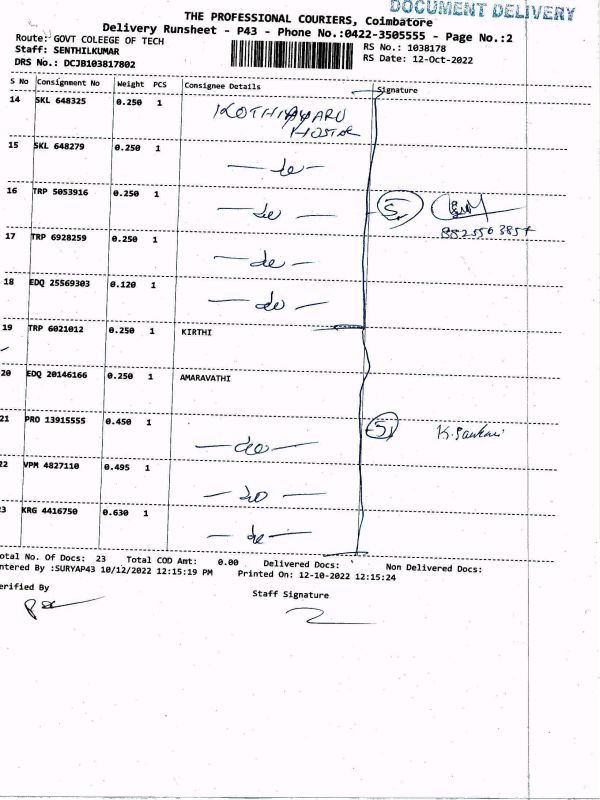 DOCUMENT DELIVERY
THE PROFESSIONAL COURIERS, Coimbatore
Delivery Runsheet - P43 - Phone No.:0422-3505555 - Page No.:2
Route: GOVT COLEEGE OF TECH
RS No.: 1038178
Staff: SENTHILKUMAR
RS Date: 12-Oct-2022
DRS No.: DCJB103817802
S No Consignment No Weight PCS Consignee Details Signature
14 SKL 648325 0.250 1
HOSTEL
15 SKL 648279 0.250 1 — do —
16 TRP 5053916 0.250 1 — do — 5
17 TRP 6928259 0.250 1 — do —
18 EDQ 25569303 0.120 1 — do —
19 TRP 6021012 0.250 1 KIRTHI
20 EDQ 20146166 0.250 1 AMARAVATHI
21 PRO 13915555 0.450 1 — do — 5 K. Sankari
22 VPM 4827110 0.495 1 — do —
3 KRG 4416750 0.630 1 — do —
otal No. Of Docs: 23 Total COD Amt: 0.00 Delivered Docs: Non Delivered Docs:
ntered By :SURYAP43 10/12/2022 12:15:19 PM Printed On: 12-10-2022 12:15:24
erified By
Staff Signature